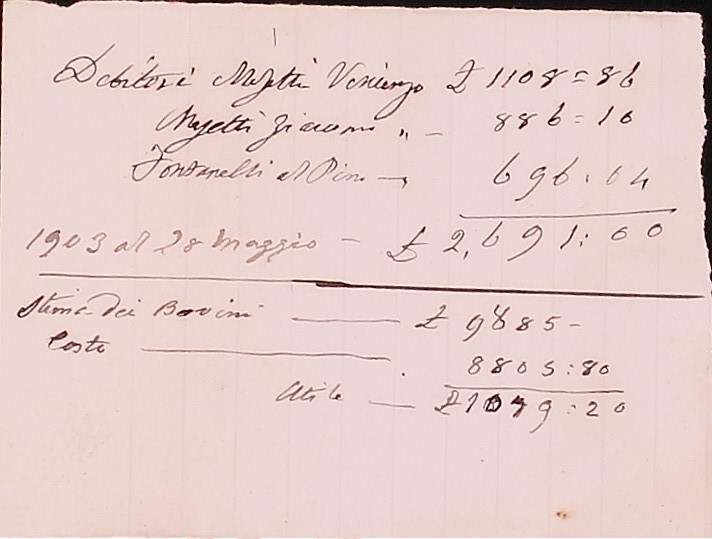 Debitori Mejetti Vincenzo £ 1108=86
Mejetti Giacomo „ – 886=10
Fontanelli al Pino — 696.04
1903 al 28 Maggio – £ 2,691:00
Stima dei Bovini — £ 9885-
Costo — 8805:80
Utile — £ 1079:20